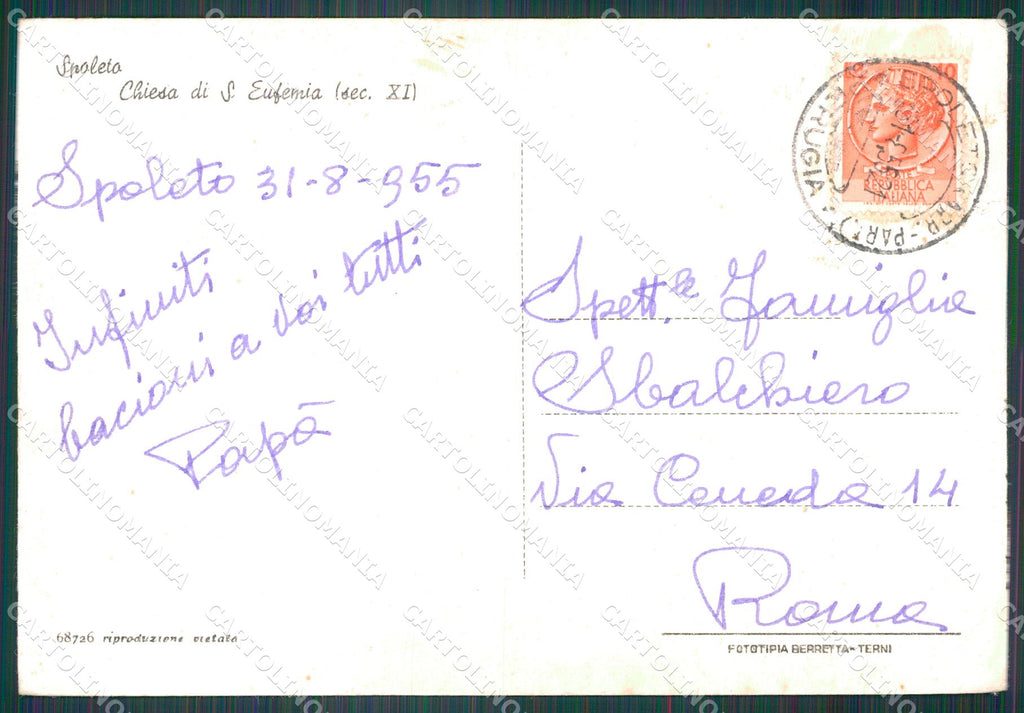 Spoleto
Chiesa di S. Eufemia (sec. XI)
Spoleto 31-8-955
Infiniti
bacioni a voi tutti
Papà
68726 riproduzione vietata
REPUBBLICA
ITALIANA
SPOLETO
PERUGIA
Spett.le Famiglia
Sbalchiero
Via Ceneda 14
Roma
FOTOTIPIA BERRETTA - TERNI
CARTOLINOMANIA